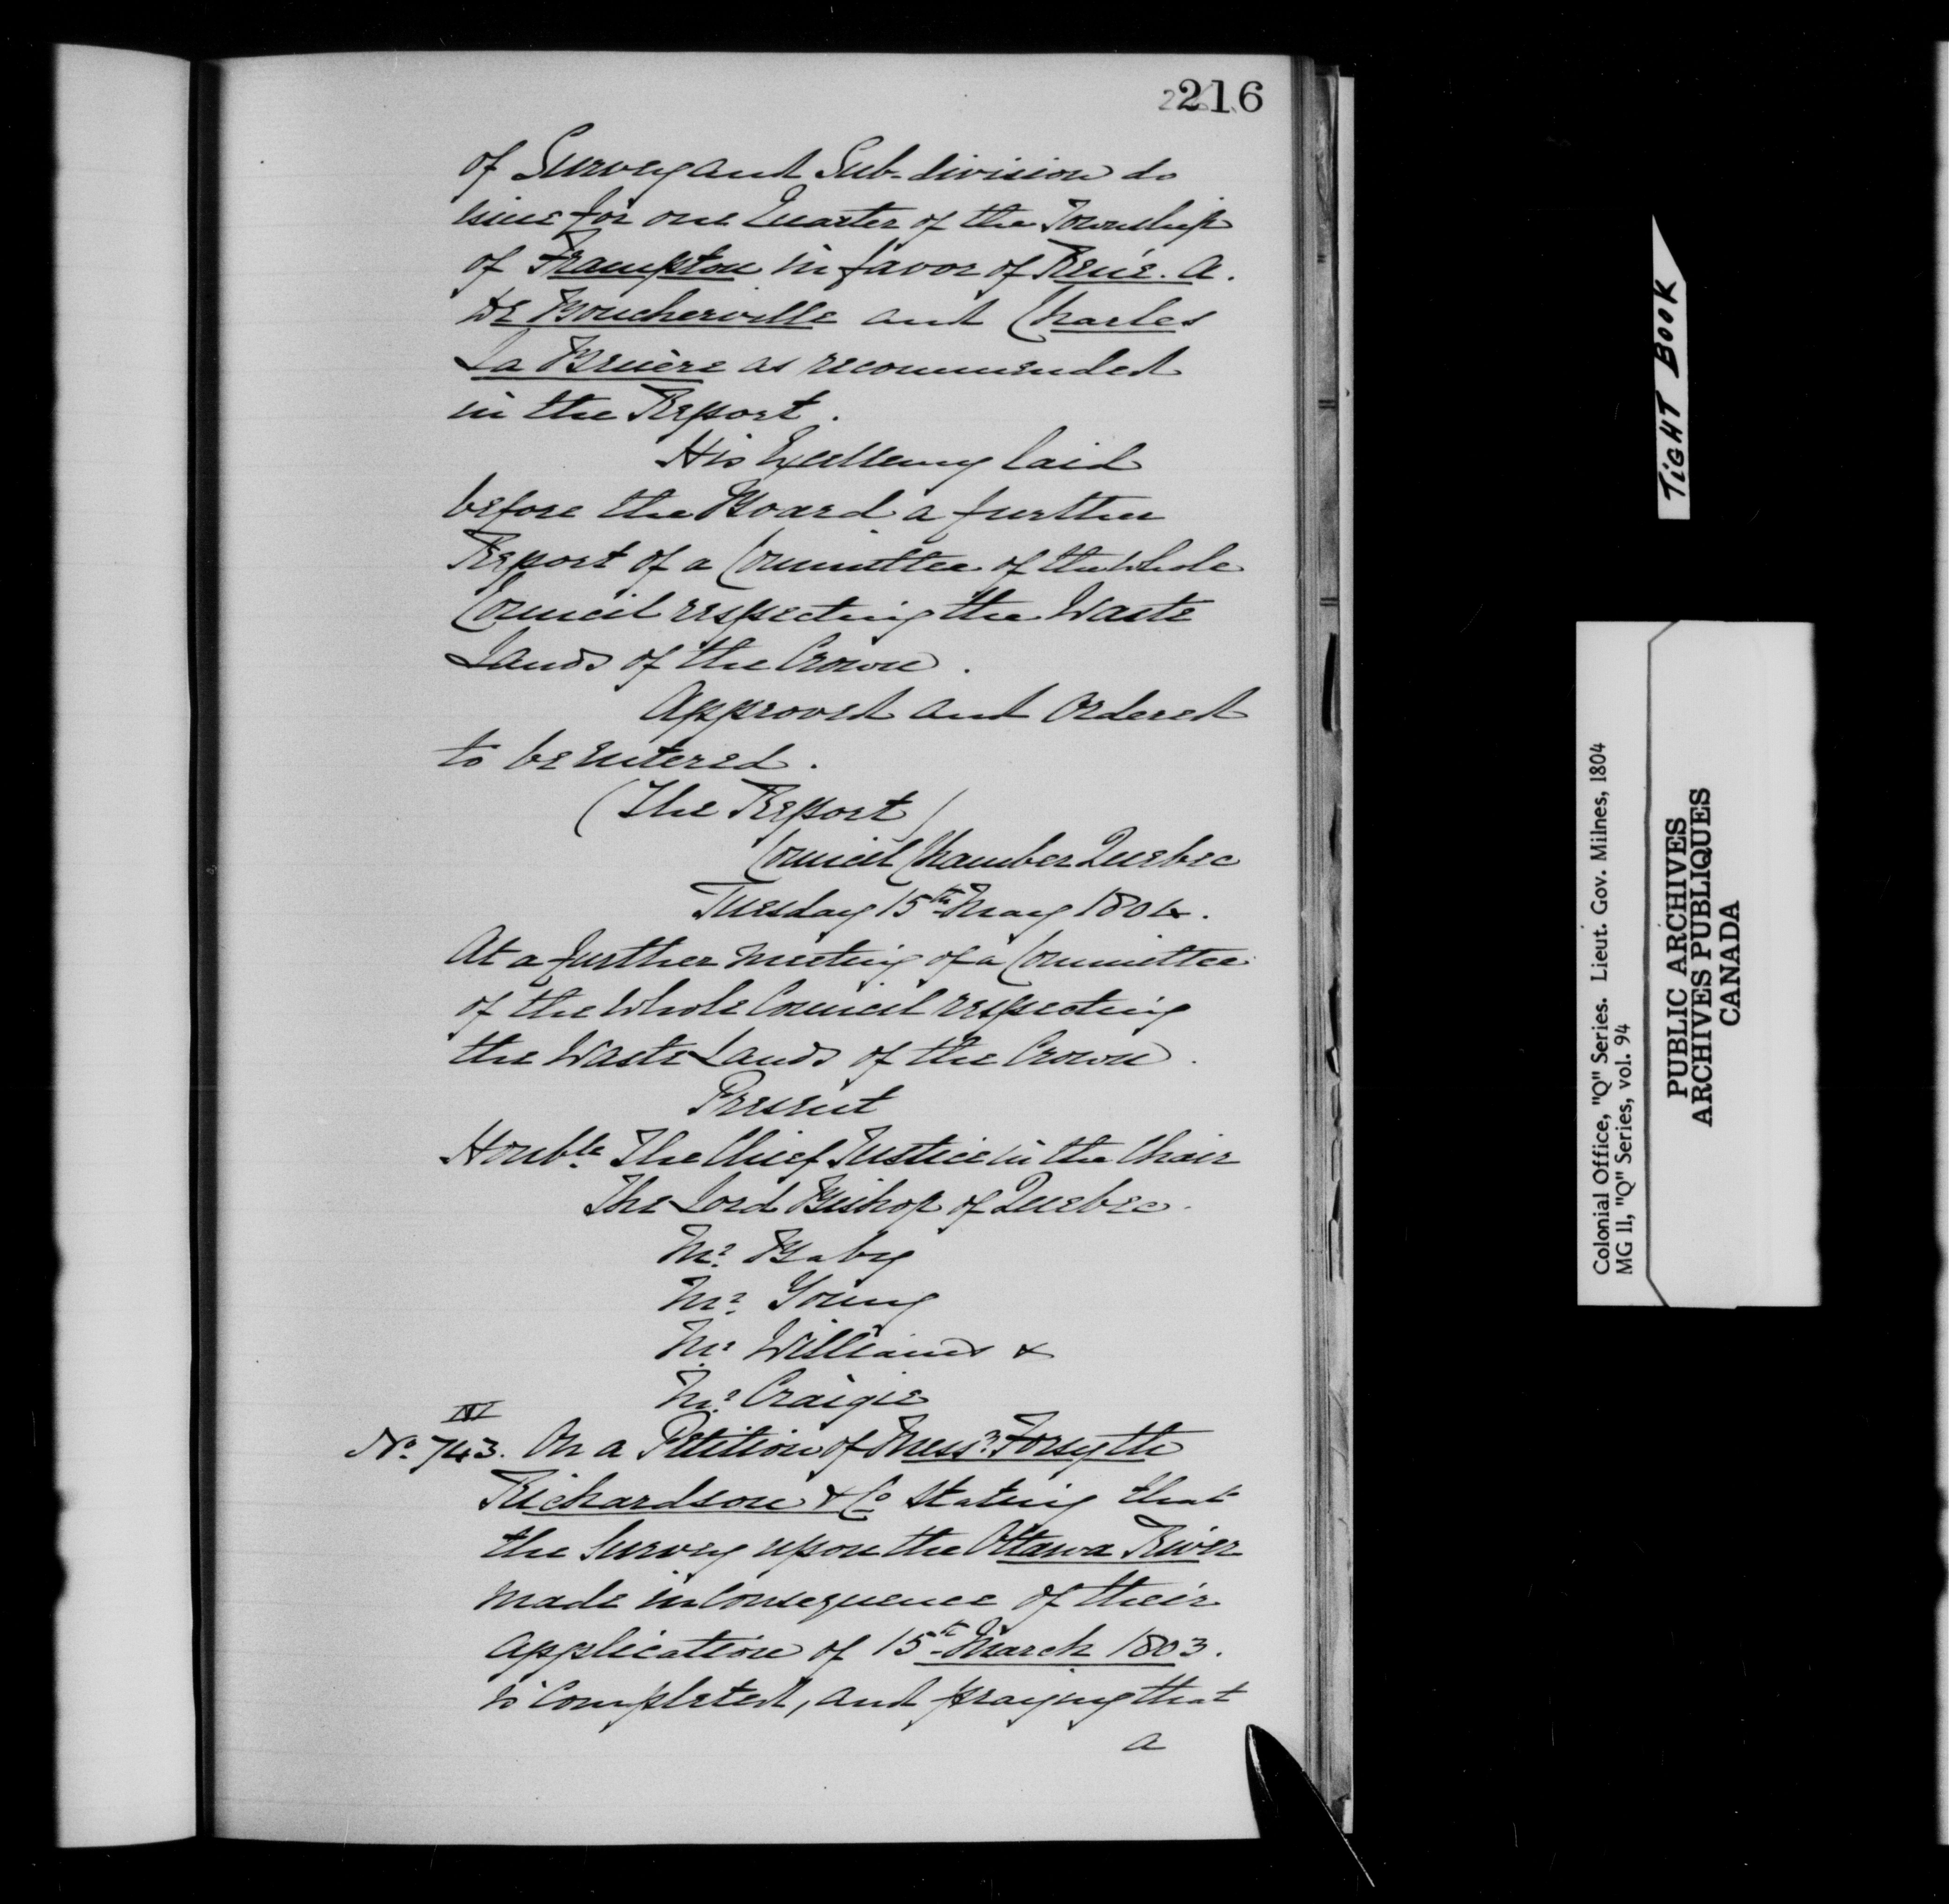 216
of Survey and Sub-division do
issue for one Quarter of the Township
of Frampton in favor of René. A.
DE Boucherville and Charles
La Bruère as recommended
in the Report.
His Excellency laid
before the Board a further
Report of a Committee of the Whole
Council respecting the Waste
Lands of the Crown.
Approved and Ordered
to be entered.
(The Report)
Council Chamber Quebec
Tuesday 15th May 1804.
At a further meeting of a Committee
of the Whole Council respecting
the Waste Lands of the Crown.
Present
Honble The Chief Justice in the Chair
The Lord Bishop of Quebec.
Mr. Baby
Mr. Young
Mr. Williams &
Mr. Craigie
IV
No. 743. On a Petition of Messrs. Forsyth
Richardson & Co stating that
the Survey upon the Ottawa River
made in Consequence of their
application of 15th March 1803.
is Completed, and praying that
a
TIGHT BOOK
Colonial Office, "Q" Series. Lieut. Gov. Milnes, 1804
MG II, "Q" Series, vol. 94
PUBLIC ARCHIVES
ARCHIVES PUBLIQUES
CANADA